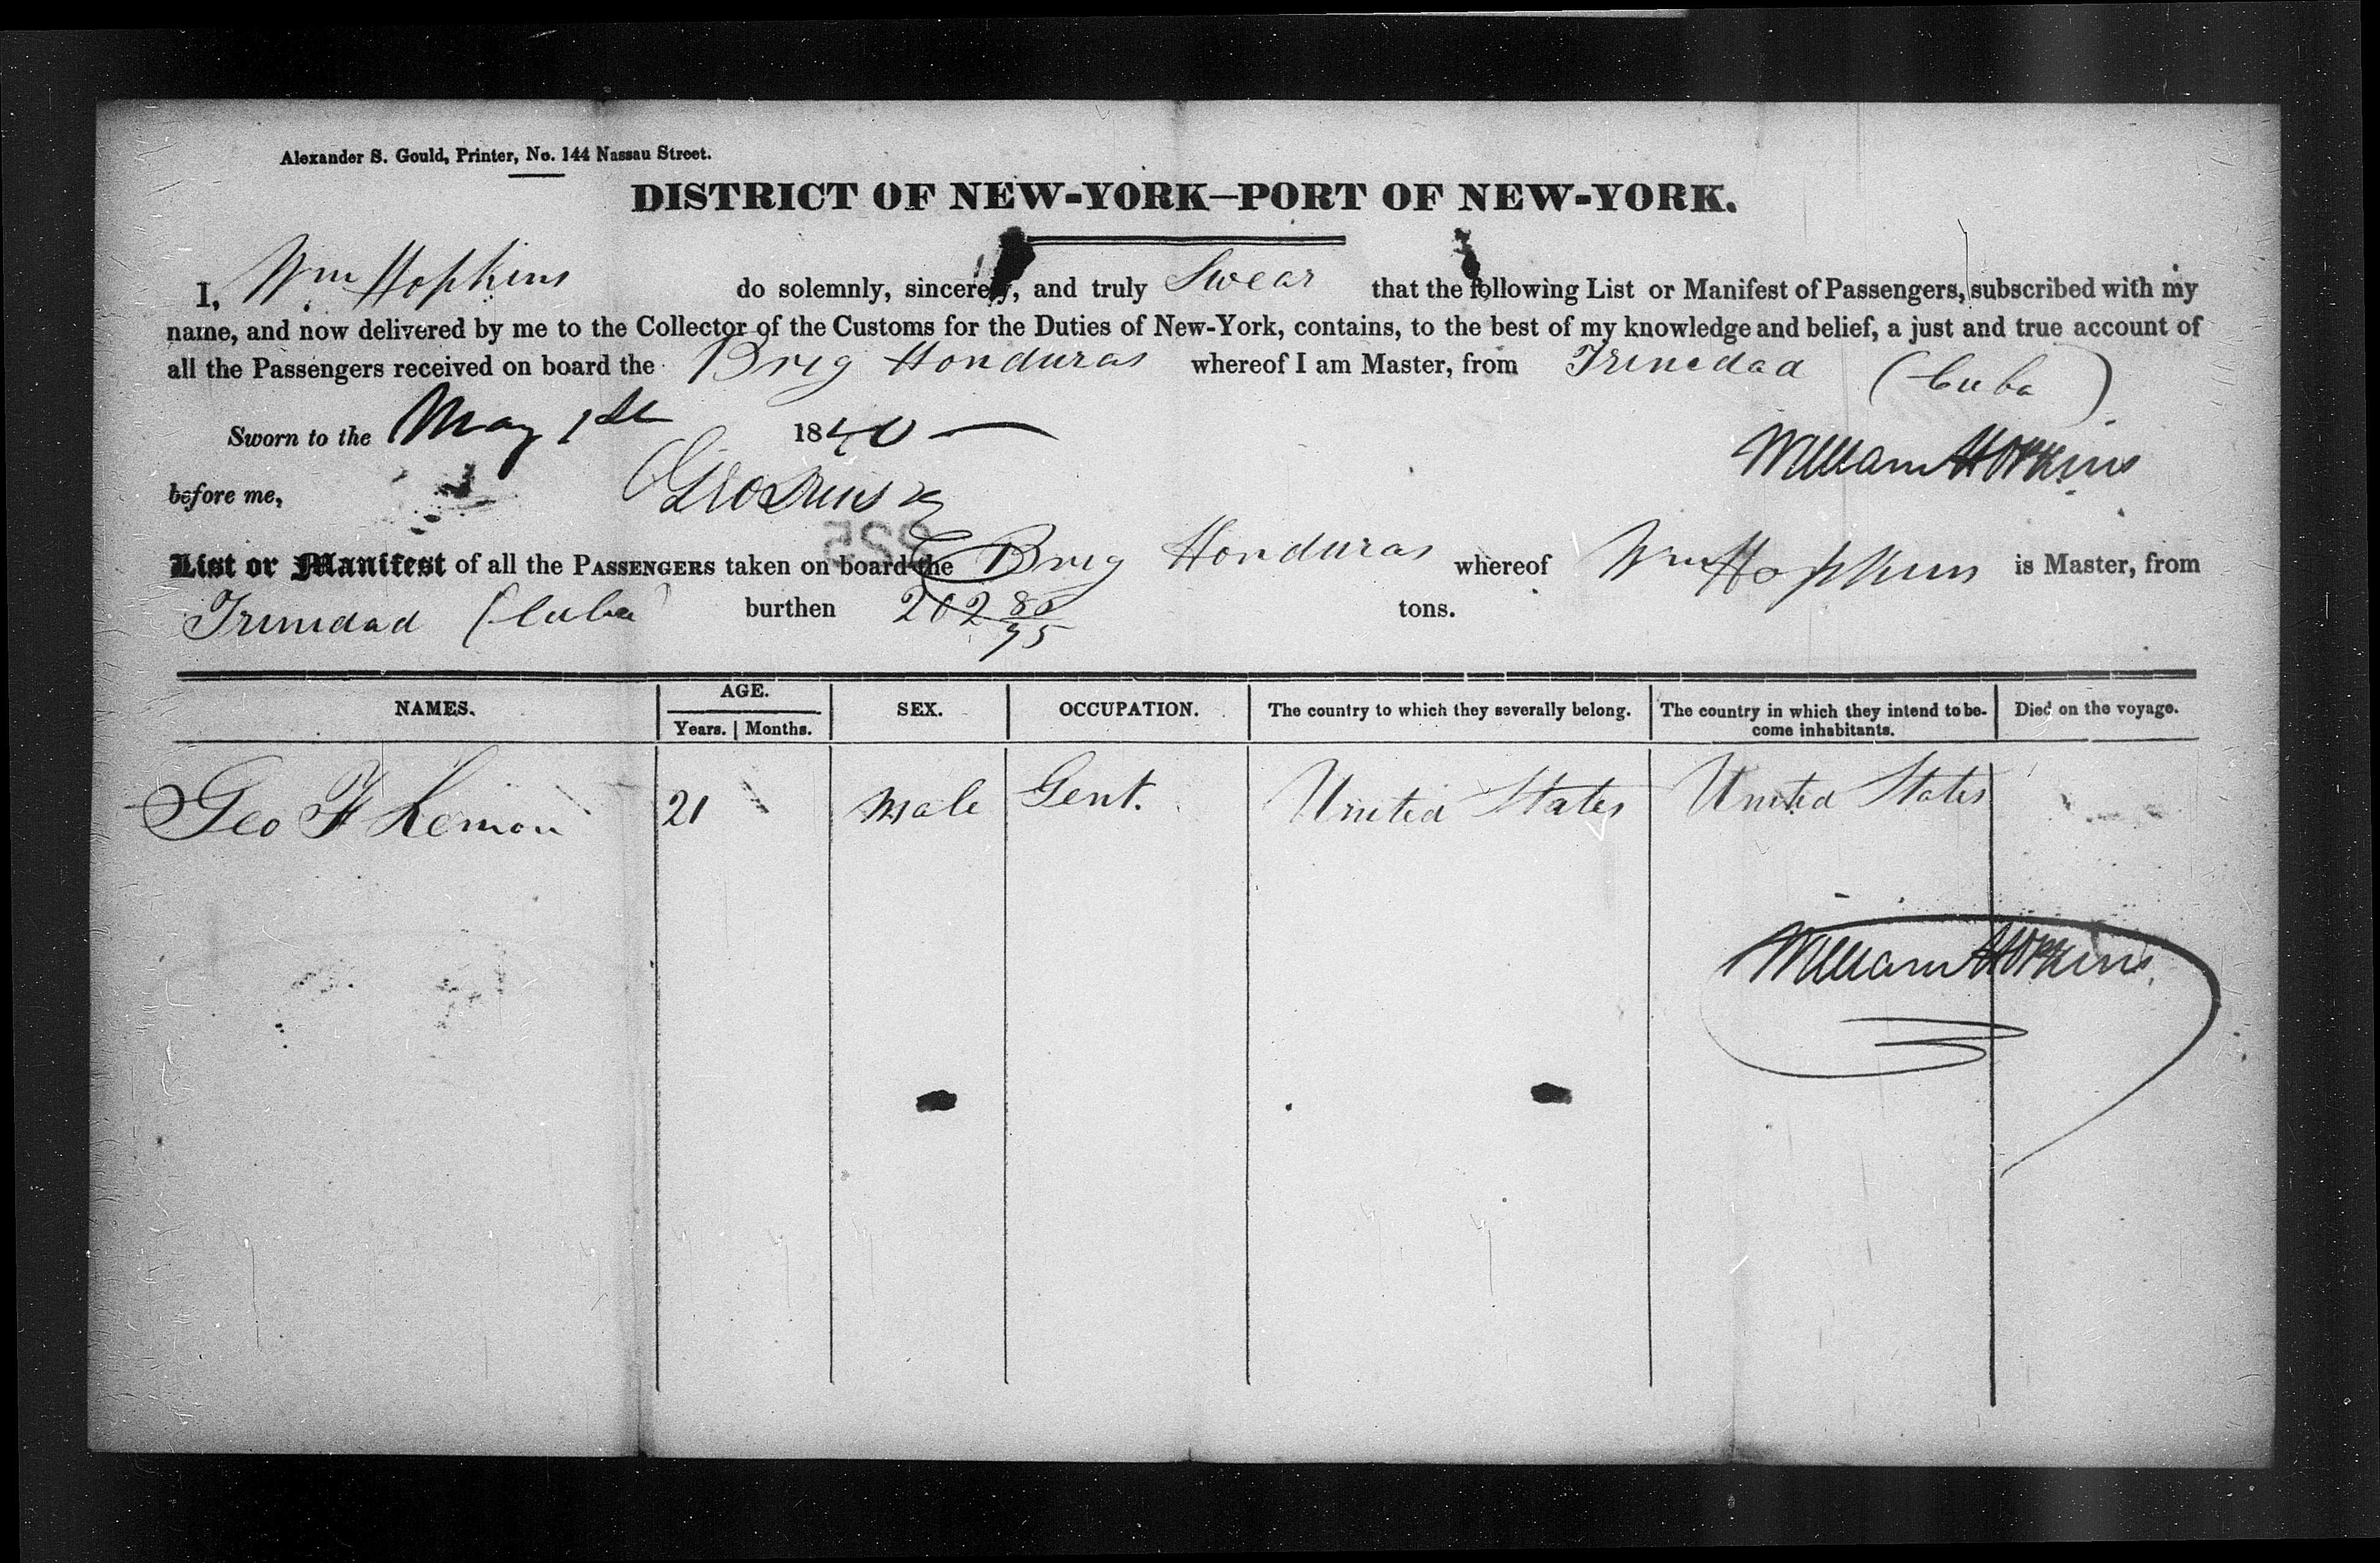 Alexander S. Gould, Printer, No. 144 Nassau Street.
DISTRICT OF NEW-YORK—PORT OF NEW-YORK.
I, Wm Hopkins do solemnly, sincerely, and truly Swear that the following List or Manifest of Passengers, subscribed with my
name, and now delivered by me to the Collector of the Customs for the Duties of New-York, contains, to the best of my knowledge and belief, a just and true account of
all the Passengers received on board the Brig Honduras whereof I am Master, from Trinedad (Cuba)
Sworn to the May 1st 1840
William Hopkins
before me,
225
List or Manifest of all the PASSENGERS taken on board the Brig Honduras whereof Wm Hopkins is Master, from
Trinidad (Cuba) burthen 202 80/95 tons.
NAMES. AGE. SEX. OCCUPATION. The country to which they severally belong. The country in which they intend to be- Died on the voyage.
Years. Months. come inhabitants.
Geo F 21 Male Gent. United States United States
William Hopkins